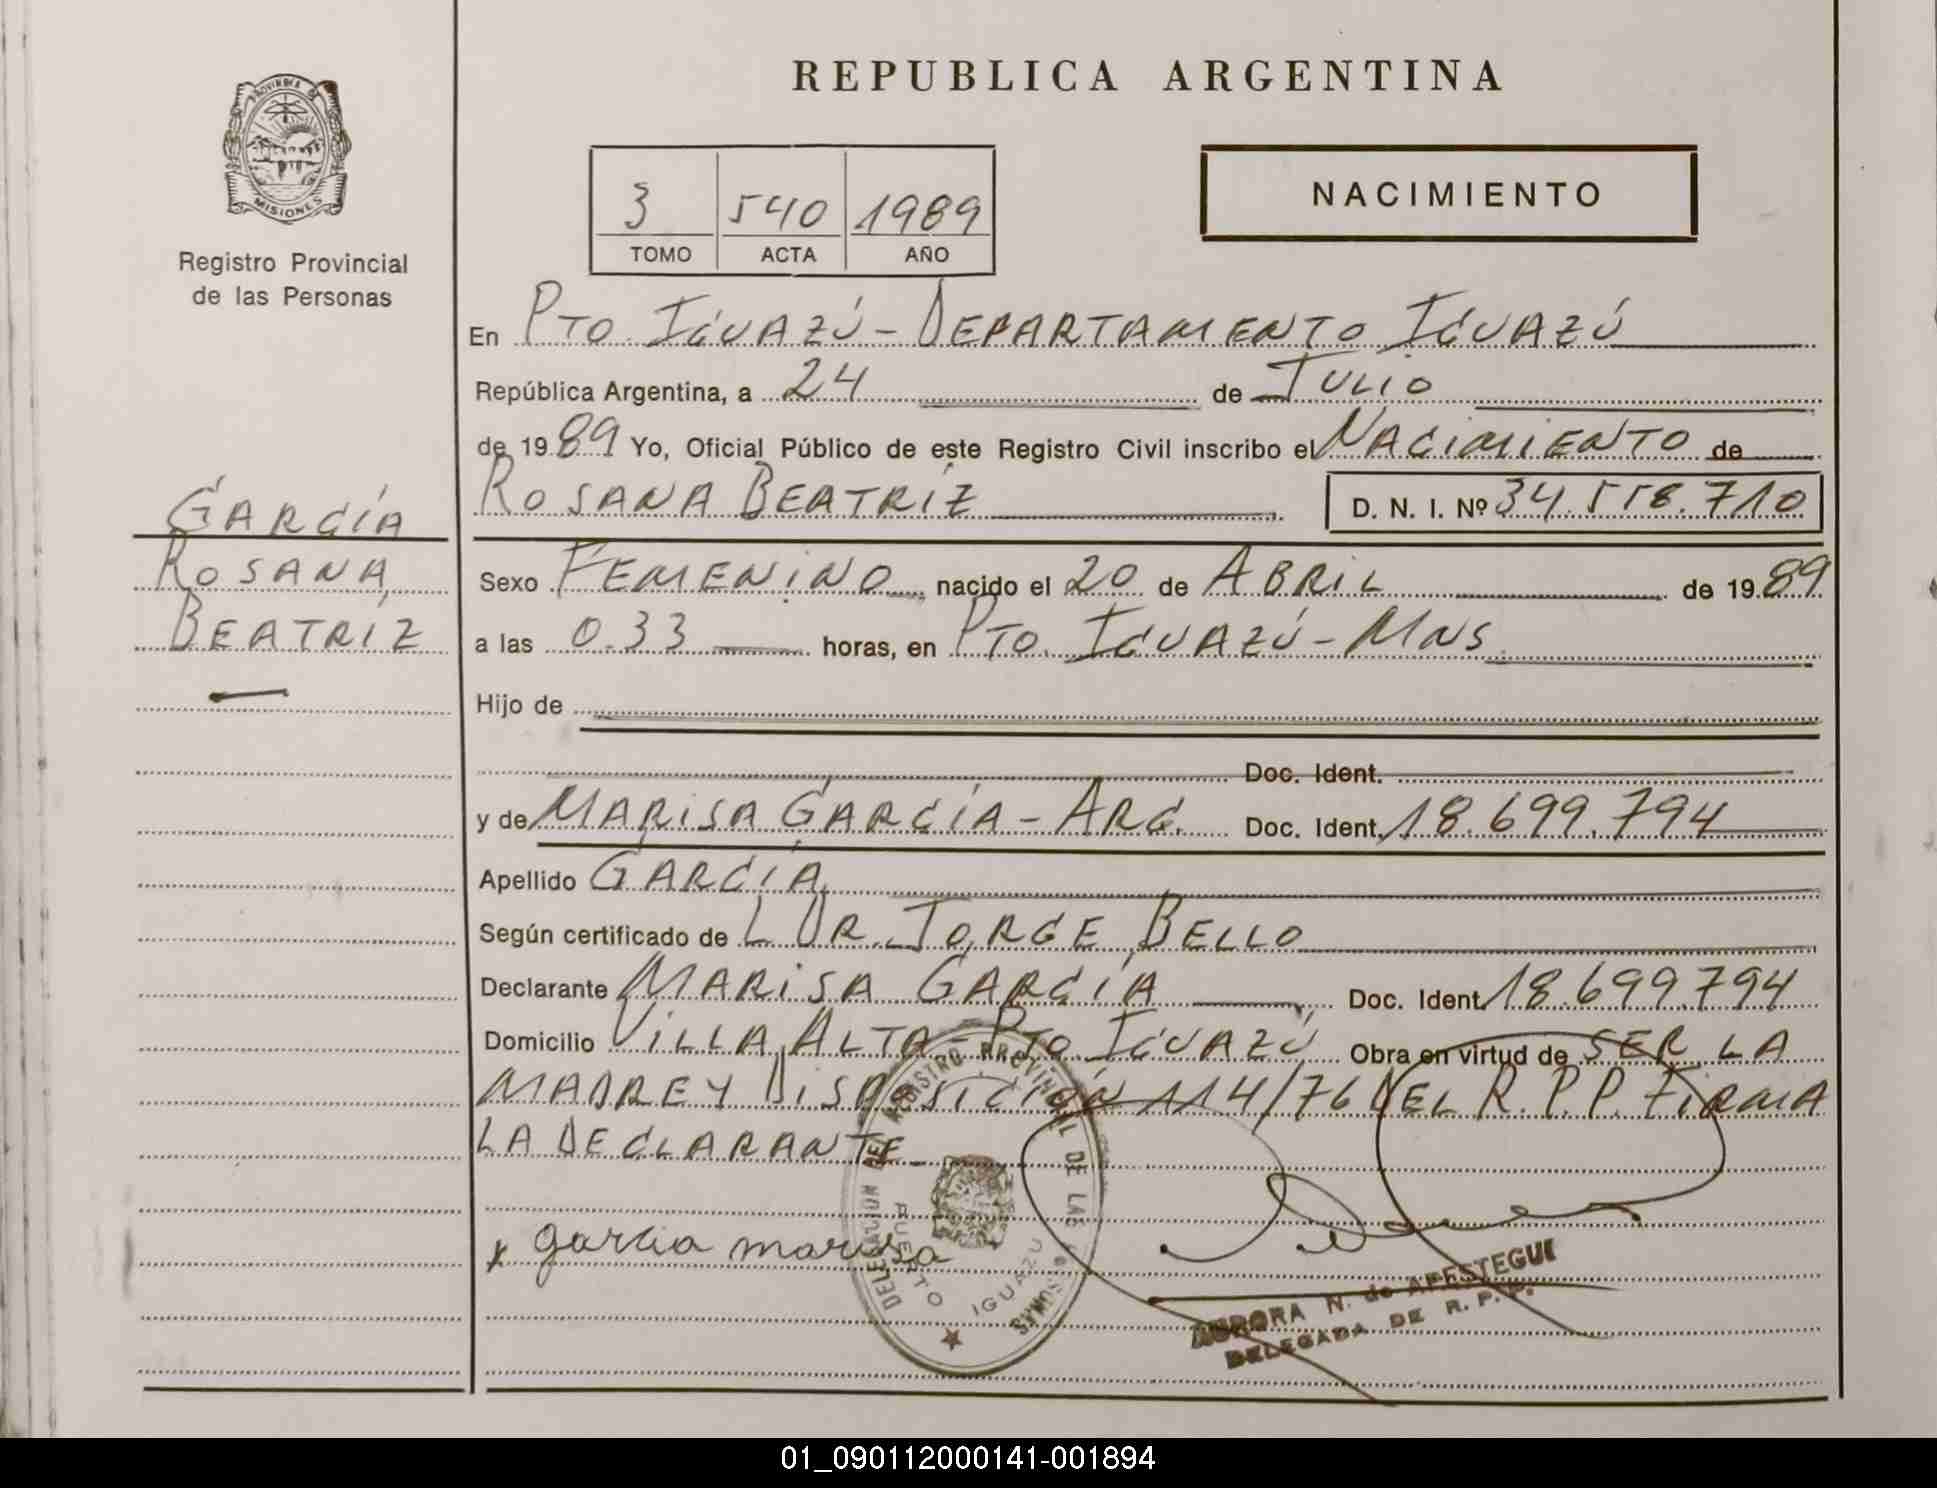 REPUBLICA ARGENTINA
PROVINCIA DE
MISIONES
Registro Provincial
de las Personas
3 540 1989
TOMO ACTA AÑO
NACIMIENTO
En PTO. IGUAZÚ - DEPARTAMENTO IGUAZÚ
República Argentina, a 24 de JULIO
de 1989 Yo, Oficial Público de este Registro Civil inscribo el NACIMIENTO de
ROSANA BEATRÍZ D. N. I. Nº 34.558.710
GARCÍA
ROSANA
BEATRÍZ
Sexo FEMENINO nacido el 20 de ABRIL de 1989
a las 0.33 horas, en PTO. IGUAZÚ - MNS
Hijo de
Doc. Ident.
y de MARISA GARCÍA - ARG. Doc. Ident. 18.699.794
Apellido GARCÍA
Según certificado de L DR. JORGE BELLO
Declarante MARISA GARCÍA Doc. Ident. 18.699.794
Domicilio VILLA ALTA - PTO IGUAZÚ Obra en virtud de SER LA
MADRE Y DISPOSICIÓN 114/76 DEL R.P.P. FIRMA
LA DECLARANTE
x garcia marisa
DELEGACION DEL REGISTRO PROVINCIAL DE LAS PERSONAS
PUERTO IGUAZU
AURORA N. de APESTEGUI
DELEGADA DE R. P. P.
01_090112000141-001894